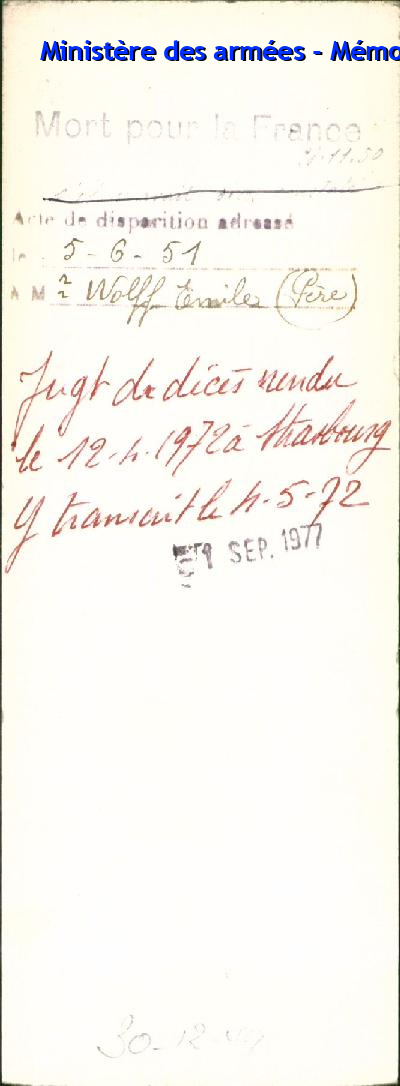 Ministère des armées - Mémo
Mort pour la France
11.50
Acte de disparition adressé
le 5 - 6 - 51
à M r Wolff Emile (Père)
Jugt de décès rendu
le 12.4.1972 à Strasbourg
Y transcrit le 4-5-72
SEP. 1977
30-12-49